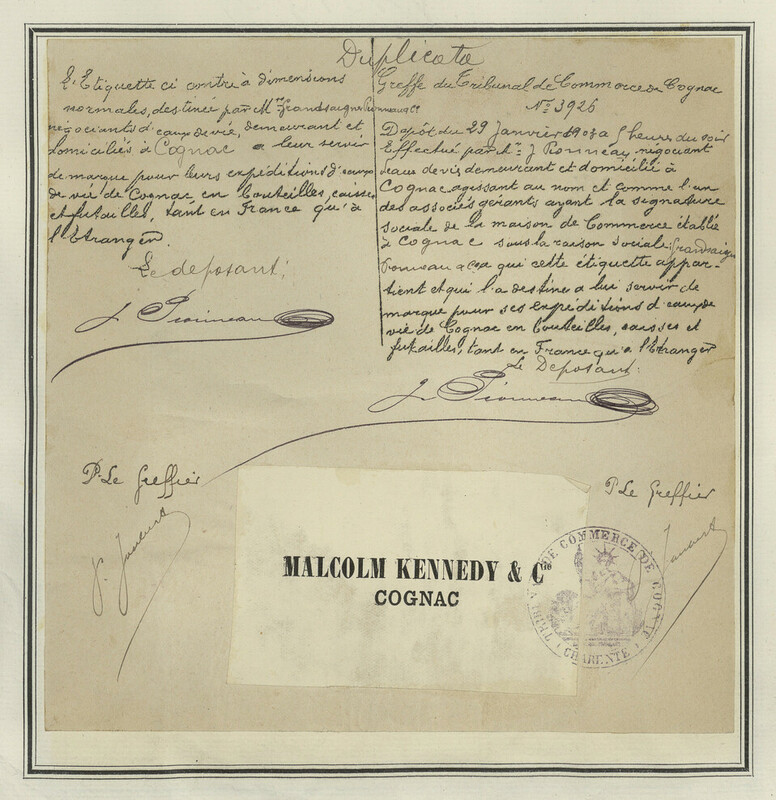 Duplicata
L'Etiquette ci contre à dimensions
normales, destinée par M
négociants d'eaux de vie, demeurant et
domiciliés à Cognac a leur servir
de marque pour leurs expéditions d'eaux
de vie de Cognac en bouteilles, caisses
et futailles, tant en France qu'à
l'Etranger.
Le deposant;
Greffe du Tribunal de Commerce de Cognac
No 3926
Depôt du 29 Janvier heures du soir
Effectué par J négociant
eaux de vie demeurant et domicilié à
Cognac agissant au nom et comme l'un
des associés gérants ayant la signature
sociale de la maison de Commerce établie
à Cognac sous la raison sociale
qui cette étiquette appar-
tient et qui l'a destine a lui servir de
marque pour ses expéditions d'eaux de
vie de Cognac en bouteilles, caisses et
futailles, tant en France qu'a l'Etranger
Le Deposant:
P. Le Greffier
P Le Greffier
MALCOLM KENNEDY & Co
COGNAC
TRIBAL DE COMMERCE DE COGNAC
CHARENTE